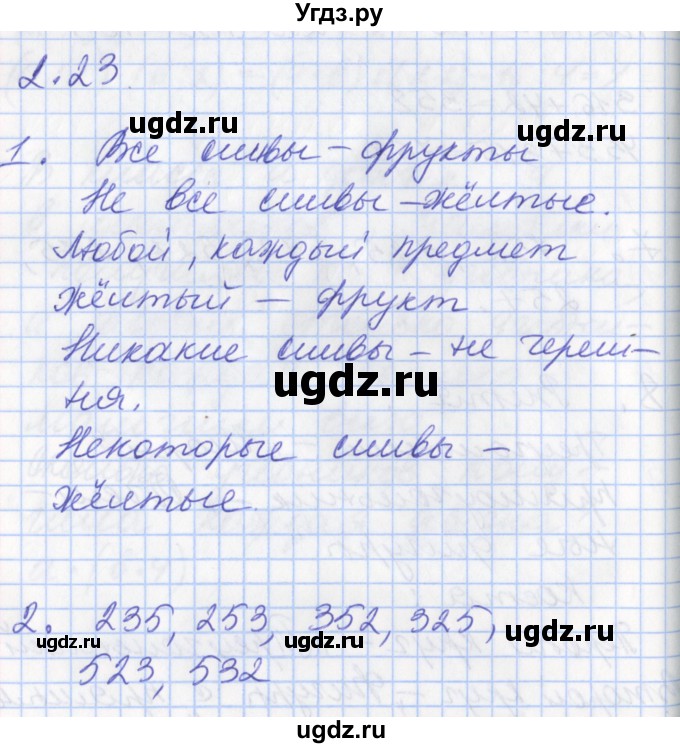 Угдз.ру
2.23
ugdz.ru ugdz.ru
1. Все сливы – фрукты
Не все сливы – жёлтые.
Любой, каждый предмет
жёлтый – фрукт
Никакие сливы – не череш–
ugdz.ru
ня.
Некоторые сливы –
жёлтые.
2. 235, 253, 352, 325,
ugdz.ru ugdz.ru ugdz.ru
523, 532
ugdz.ru